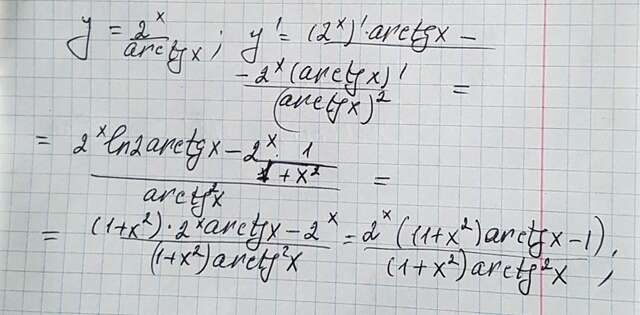 y = 2^x / arctgx ; y' = (2^x)'·arctgx −
− 2^x (arctgx)' / (arctgx)^2 =
= 2^x ln2 arctgx − 2^x · 1/(1+x^2) / arctg^2x =
= (1+x^2)·2^x arctgx − 2^x / (1+x^2) arctg^2x = 2^x ((1+x^2) arctgx − 1) / (1+x^2) arctg^2x ,